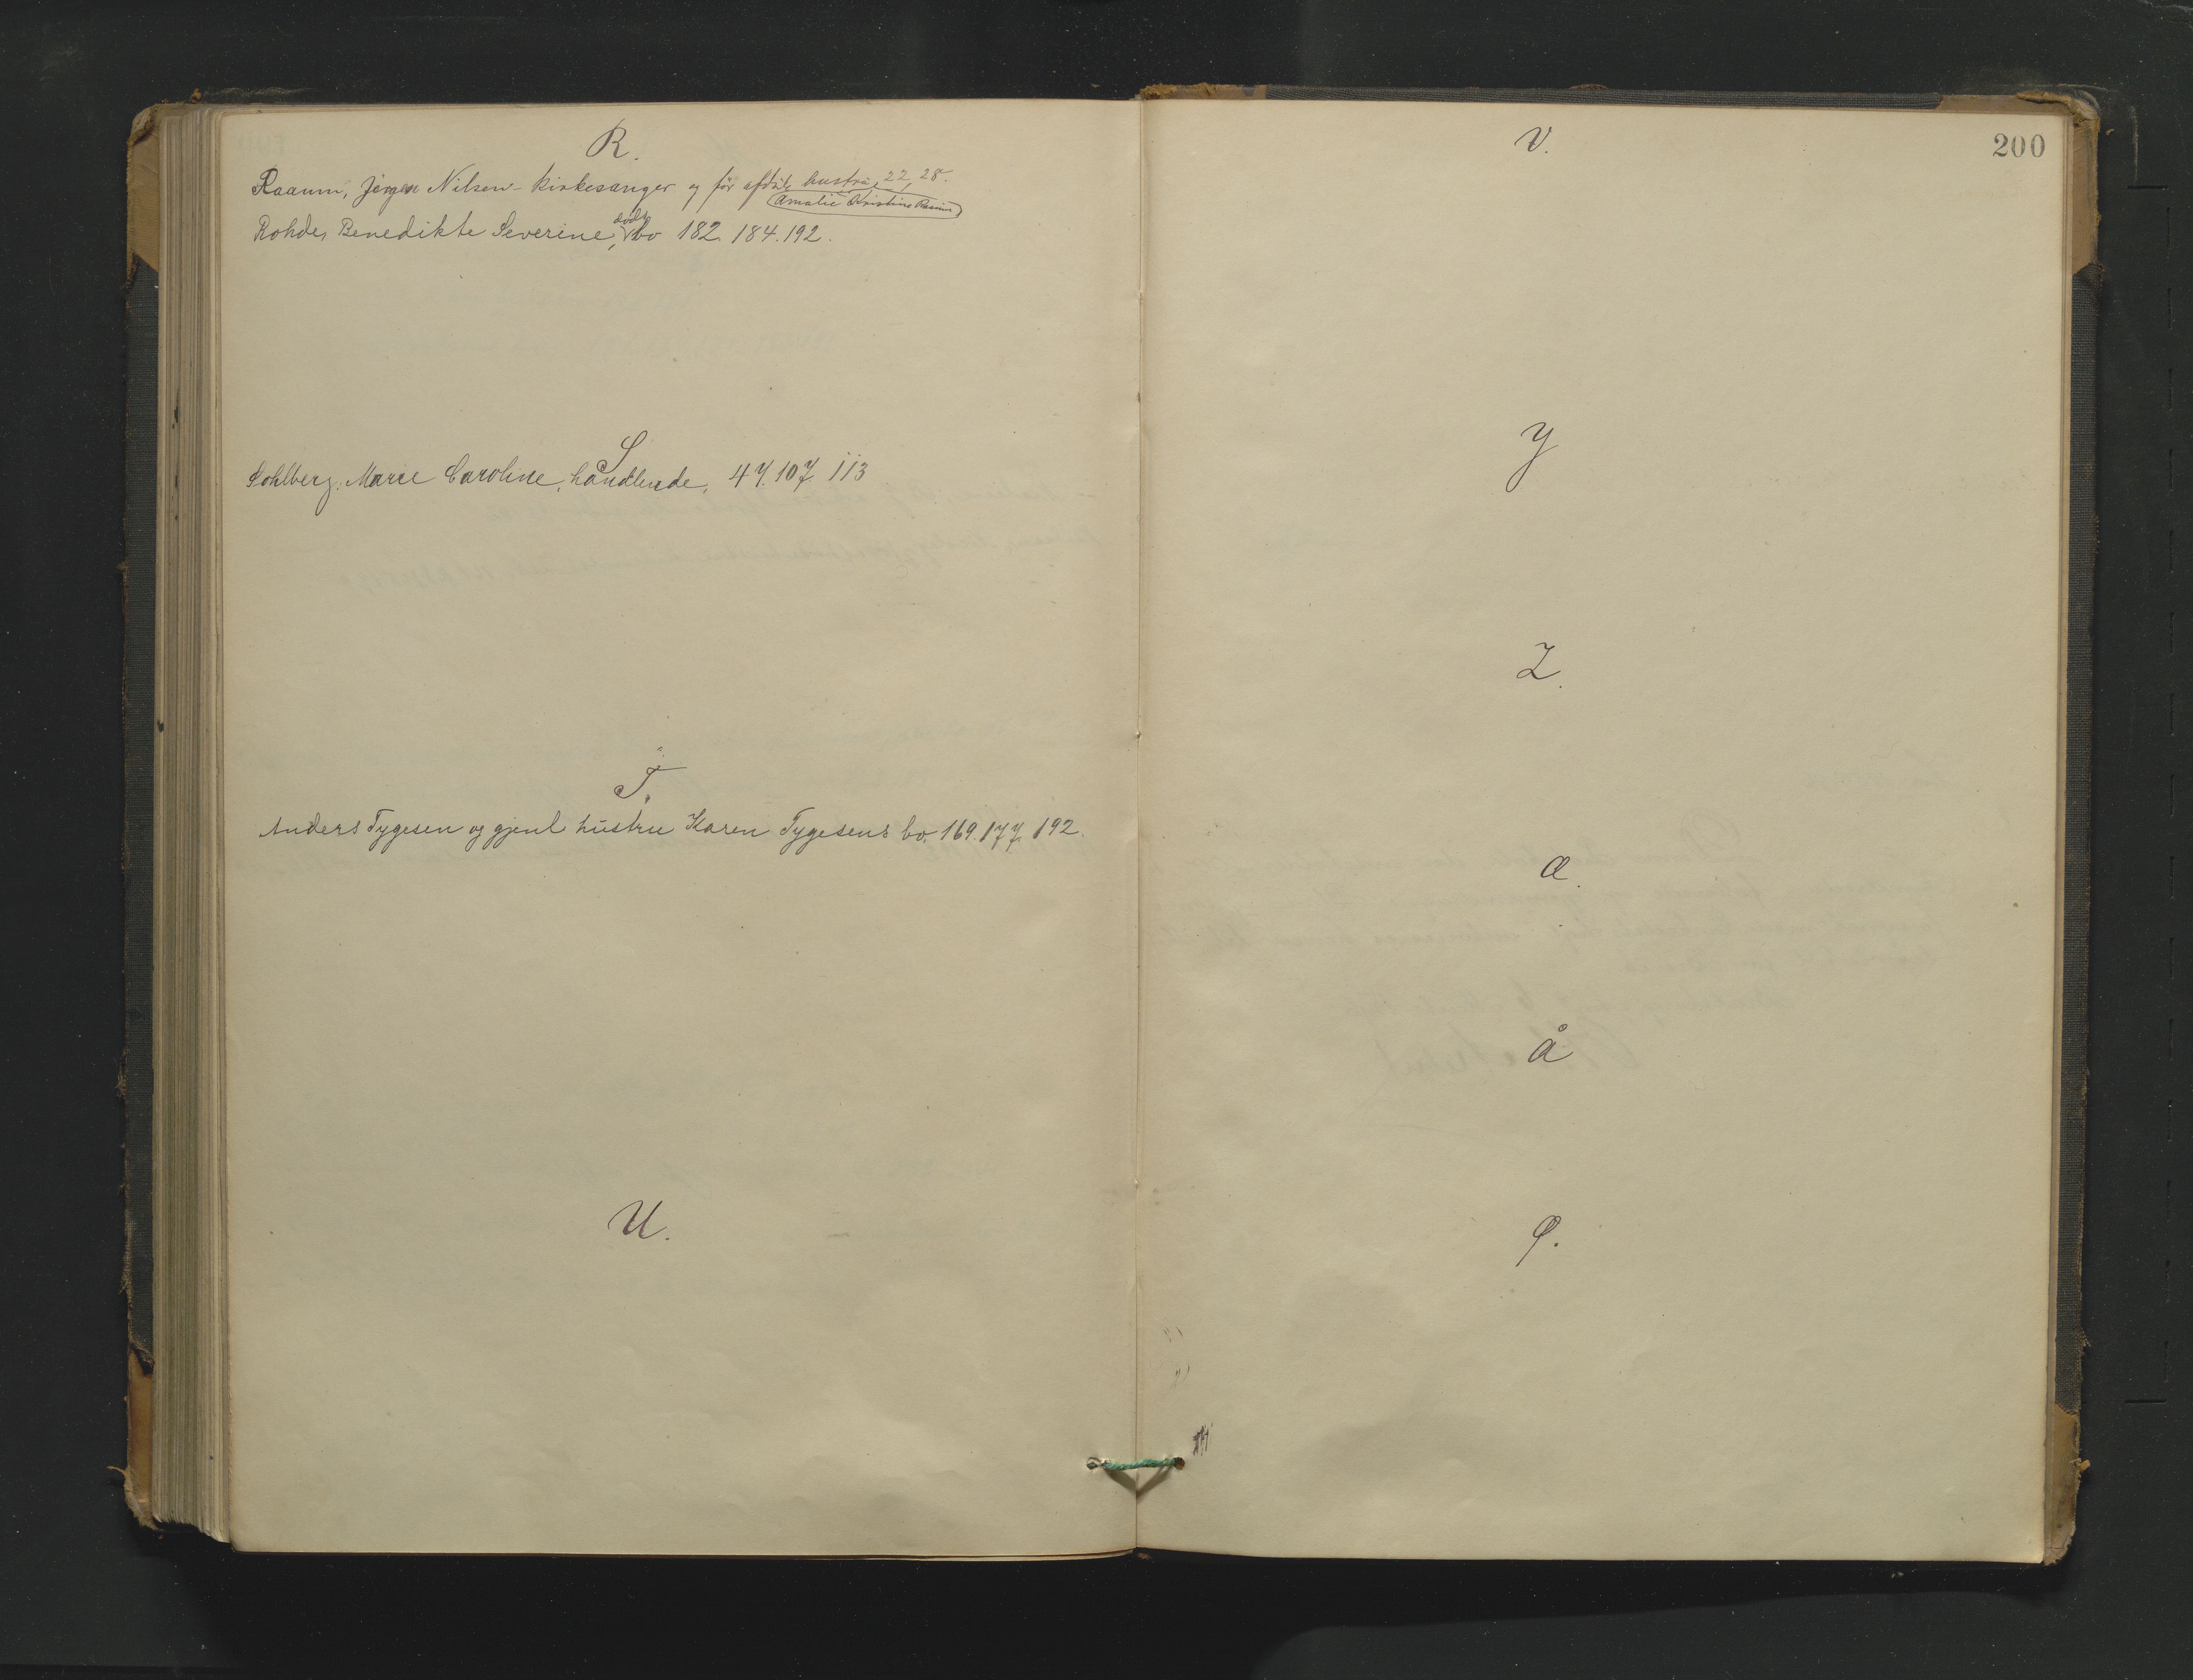 R.
Raaum, Jørgen Nilsen - kirkesanger og før afdøde hustru, 22, 28.
Amalie Kristine Raaum
Rohde, Benedikte Severine, døds bo 182. 184. 192.
S
Sohlberg, Marie Caroline, handlende, 47. 107 113
T.
Anders Tygesen og gjenl hustru Karen Tygesens bo. 169. 177. 192.
U.
200
V.
Y
Z.
Æ.
Å
Ø.